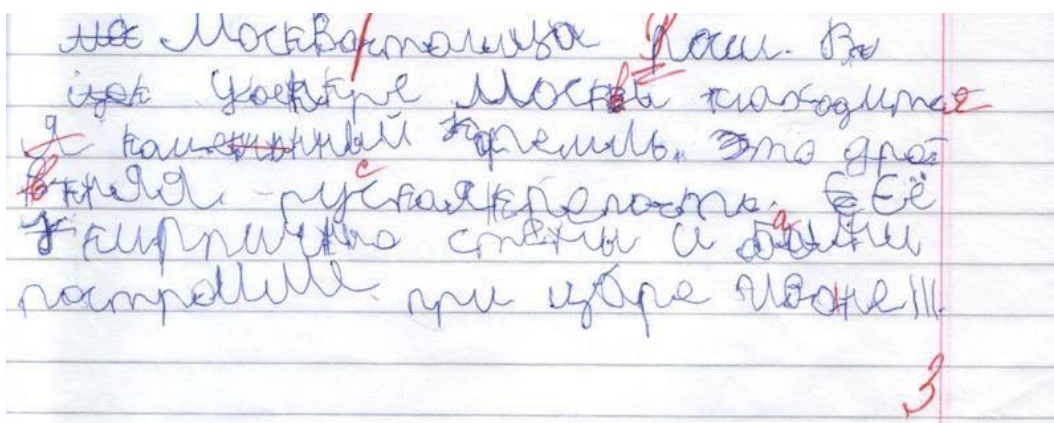 Москвастолица Росии. Во
цектре Москвы находится
каменный кремль. Это дре
вняя русскаякрепость. Её
кирпично стены и башни
построили при цбре Ивоне III.
3